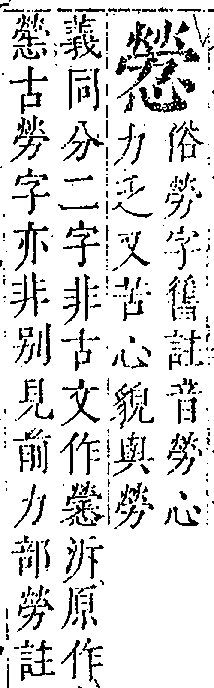 俗勞字舊註音勞心
力乏又苦心貌與勞
義同分二字非古文作泝原作
古勞字亦非別見前力部勞註